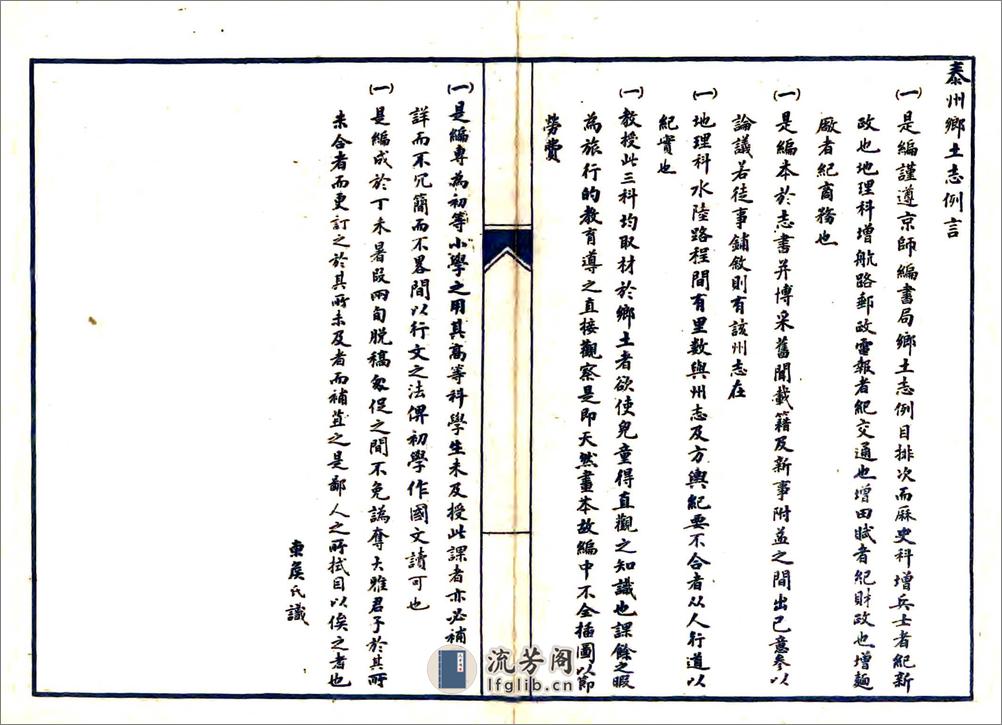 泰州鄉土志例言
(一)是編謹遵京師編書局鄉土志例目排次而厤史科增兵士者紀新
政也地理科增航路郵政電報者紀交通也增田賦者紀財政也增麵
廠者紀商務也
(一)是編本於志書并博采舊聞載籍及新事附益之間出己意參以
論議若徒事鋪敘則有該州志在
(一)地理科水陸路程間有里數與州志及方輿紀要不合者从人行道以
紀實也
(一)教授此三科均取材於鄉土者欲使兒童得直觀之知識也課餘之暇
為旅行的教育導之直接觀察是即天然畫本故編中不全插圖以節
勞費
(一)是編專為初等小學之用其高等科學生未及授此課者亦必補
詳而不冗簡而不畧間以行文之法俾初學作國文讀可也
(一)是編成於丁未暑叚兩旬脱稿匆促之間不免譌奪大雅君子於其所
未合者而更訂之於其所未及者而補葺之是鄙人之所拭目以俟之者也
東矦氏識
流芳阁
lfglib.cn